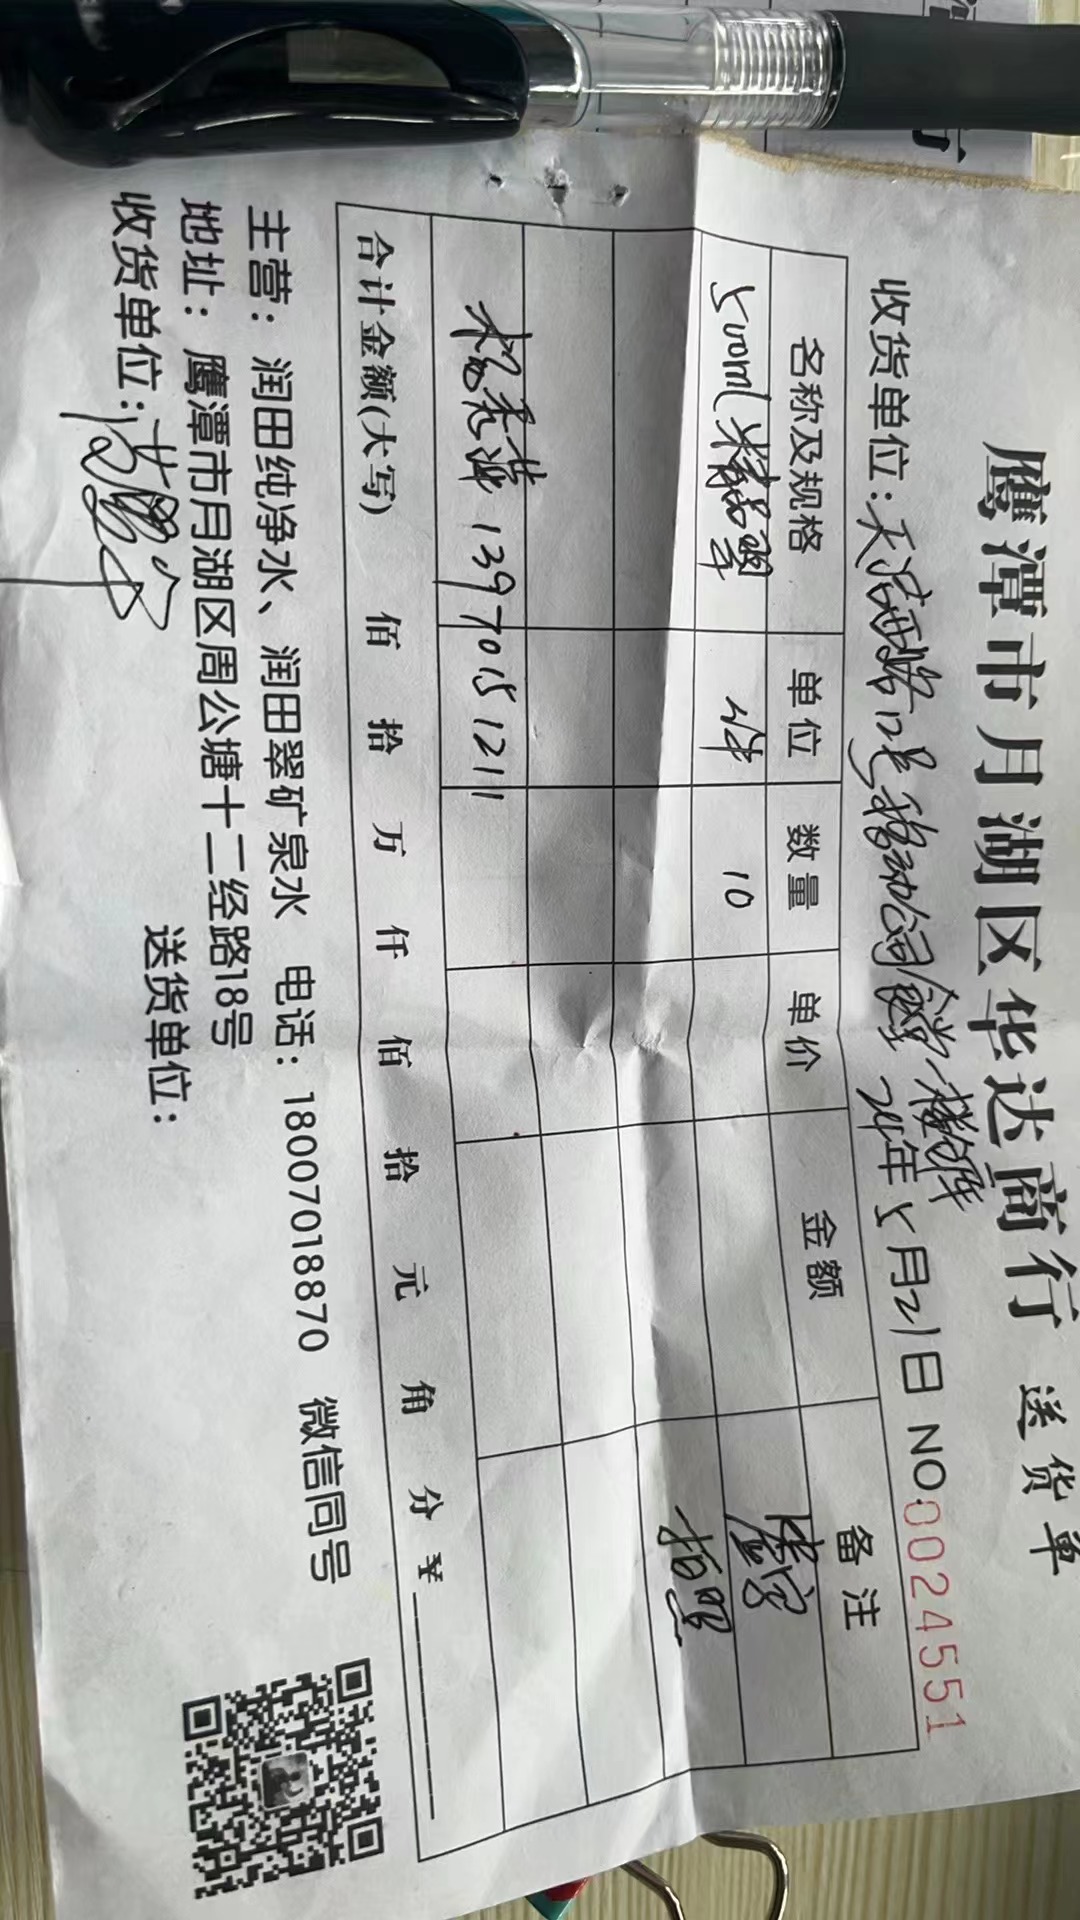 鹰潭市月湖区华达商行 送货单
收货单位：天洁西路12号移动公司食堂 24年5月21日 NO.00245551
名称及规格 单位 数量 单价 金额 备注
500ml精品翠 件 10
拍照
13970151211
合计金额(大写) 佰 拾 万 仟 佰 拾 元 角 分 ¥
主营：润田纯净水、润田翠矿泉水 电话：18007018870 微信同号
地址：鹰潭市月湖区周公塘十二经路18号
收货单位： 送货单位：